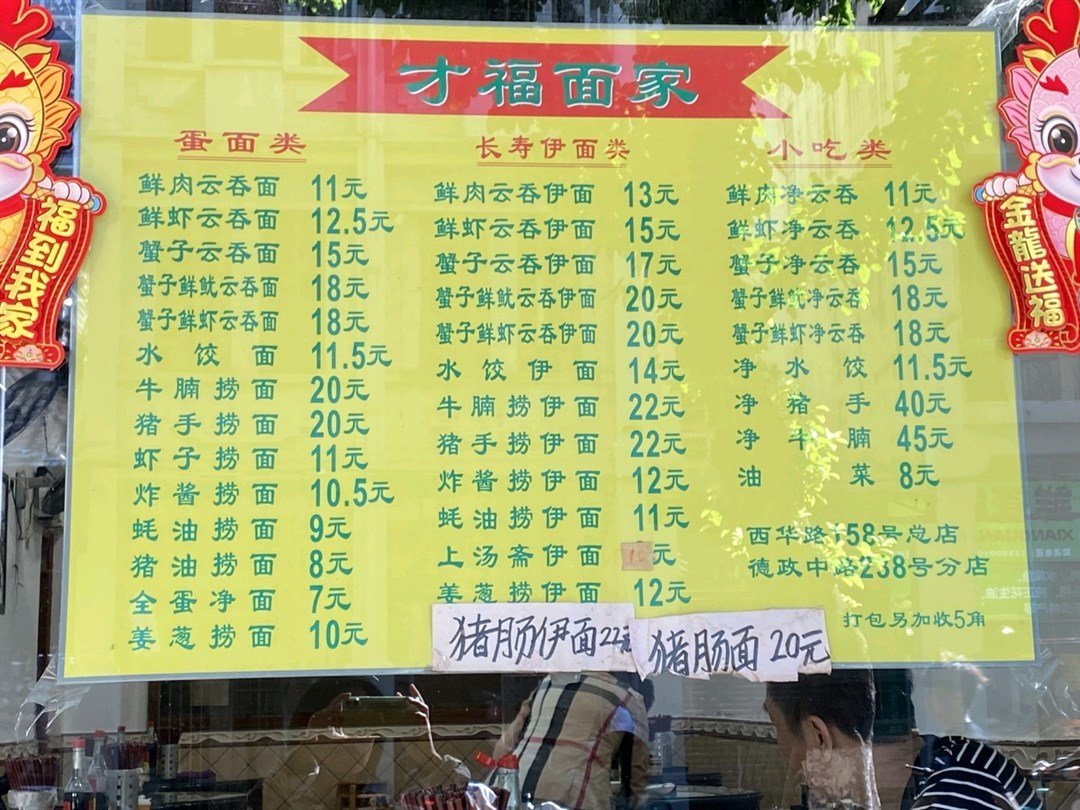 才福面家
蛋面类
鲜肉云吞面 11元
鲜虾云吞面 12.5元
蟹子云吞面 15元
蟹子鲜鱿云吞面 18元
蟹子鲜虾云吞面 18元
水饺面 11.5元
牛腩捞面 20元
猪手捞面 20元
虾子捞面 11元
炸酱捞面 10.5元
蚝油捞面 9元
猪油捞面 8元
全蛋净面 7元
姜葱捞面 10元
长寿伊面类
鲜肉云吞伊面 13元
鲜虾云吞伊面 15元
蟹子云吞伊面 17元
蟹子鲜鱿云吞伊面 20元
蟹子鲜虾云吞伊面 20元
水饺伊面 14元
牛腩捞伊面 22元
猪手捞伊面 22元
炸酱捞伊面 12元
蚝油捞伊面 11元
上汤斋伊面 10元
姜葱捞伊面 12元
猪肠伊面22元
猪肠面 20元
小吃类
鲜肉净云吞 11元
鲜虾净云吞 12.5元
蟹子净云吞 15元
蟹子鲜鱿净云吞 18元
蟹子鲜虾净云吞 18元
净水饺 11.5元
净猪手 40元
净牛腩 45元
油菜 8元
西华路158号总店
德政中路238号分店
打包另加收5角
福到我家
金龍送福